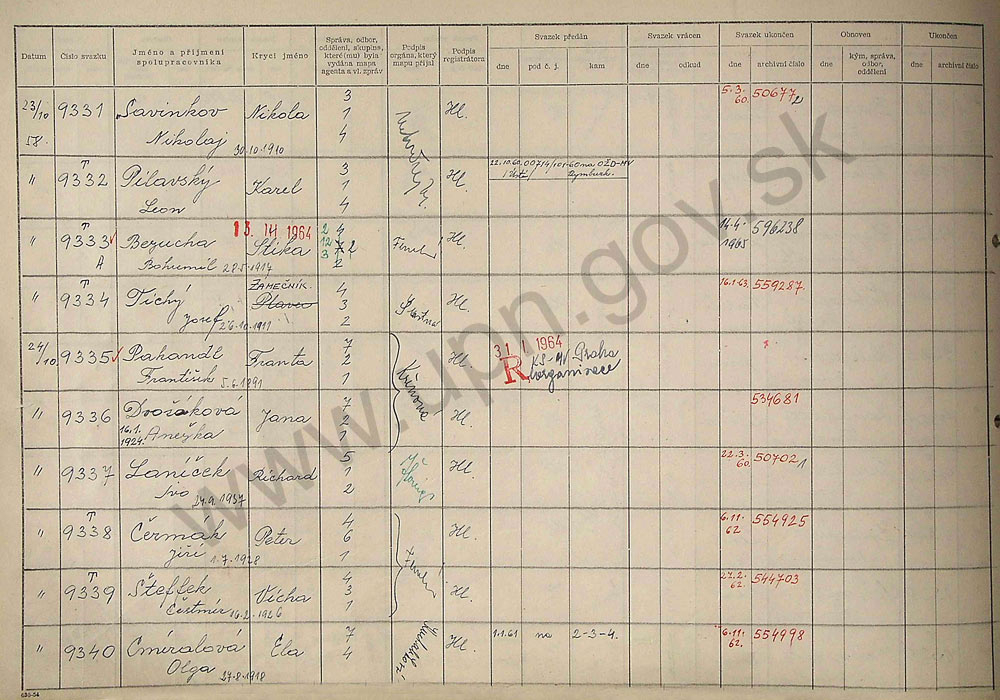 Datum | Číslo svazku | Jméno a příjmení spolupracovníka | Krycí jméno | Správa, odbor, oddělení, skupina, které(mu) byla vydána mapa agenta a vl. zpráv | Podpis orgána, který mapu přijal | Podpis registrátora | Svazek předán | Svazek vrácen | Svazek ukončen | Obnoven | Ukončen
dne | pod č. j. | kam | dne | odkud | dne | archivní číslo | dne | kým, správa, odbor, oddělení | dne | archivní číslo
23/10 58. 9331 Savinkov Nikola 3 1 4 Hl. 5.3. 60. 50677/2
Nikolaj 30.10.1910
" T 9332 Pilavský Karel 3 1 4 Hl. 22.10.60
Leon
" T 9333 A Bezucha 13. III 1964 Stika Hl. 14.4. 1965 596238
Bohumil 28.5.1914
" T 9334 Tichý ZÁMEČNÍK. 4 3 2 Šlastna Hl. 16.1.63. 559287
Josef 26.10.1911
24/10. 9335 Pahandl Franta 7 2 1 Hl. 31 I 1964 R KS-MV Praha reorganisace
František 5.6.1891
" 9336 Dvořáková Jana 7 2 1 Hl. 534681
16.1. 1924. Anežka
" 9337 Laníček Richard 5 1 2 Hl. 22.3. 60. 50702/1
Ivo 24.9.1937
" T 9338 Čermák Peter 4 6 1 Hl. 6.11. 62 554925
Jiří 1.7.1928
" T 9339 Šteffek Vícha 4 3 1 Hl. 27.2. 62. 544703
Čestmír 16.2.1926
" 9340 Cmíralová Ela 7 4 Hl. 1.1.61 na 2-3-4. 6.11. 62. 554998
Olga 27.8.1918
630-54
www.upn.gov.sk